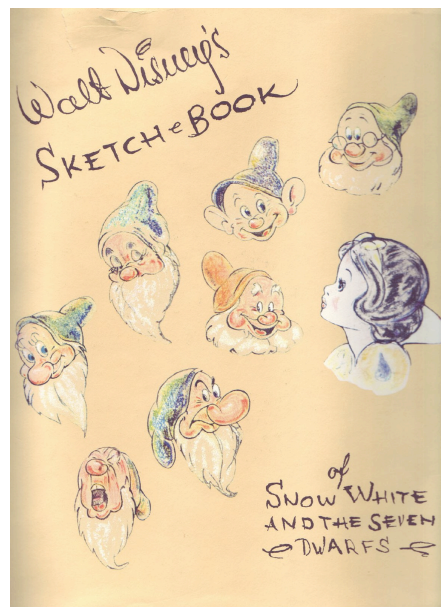 Walt Disney's
SKETCH BOOK
of
SNOW WHITE
AND THE SEVEN
DWARFS